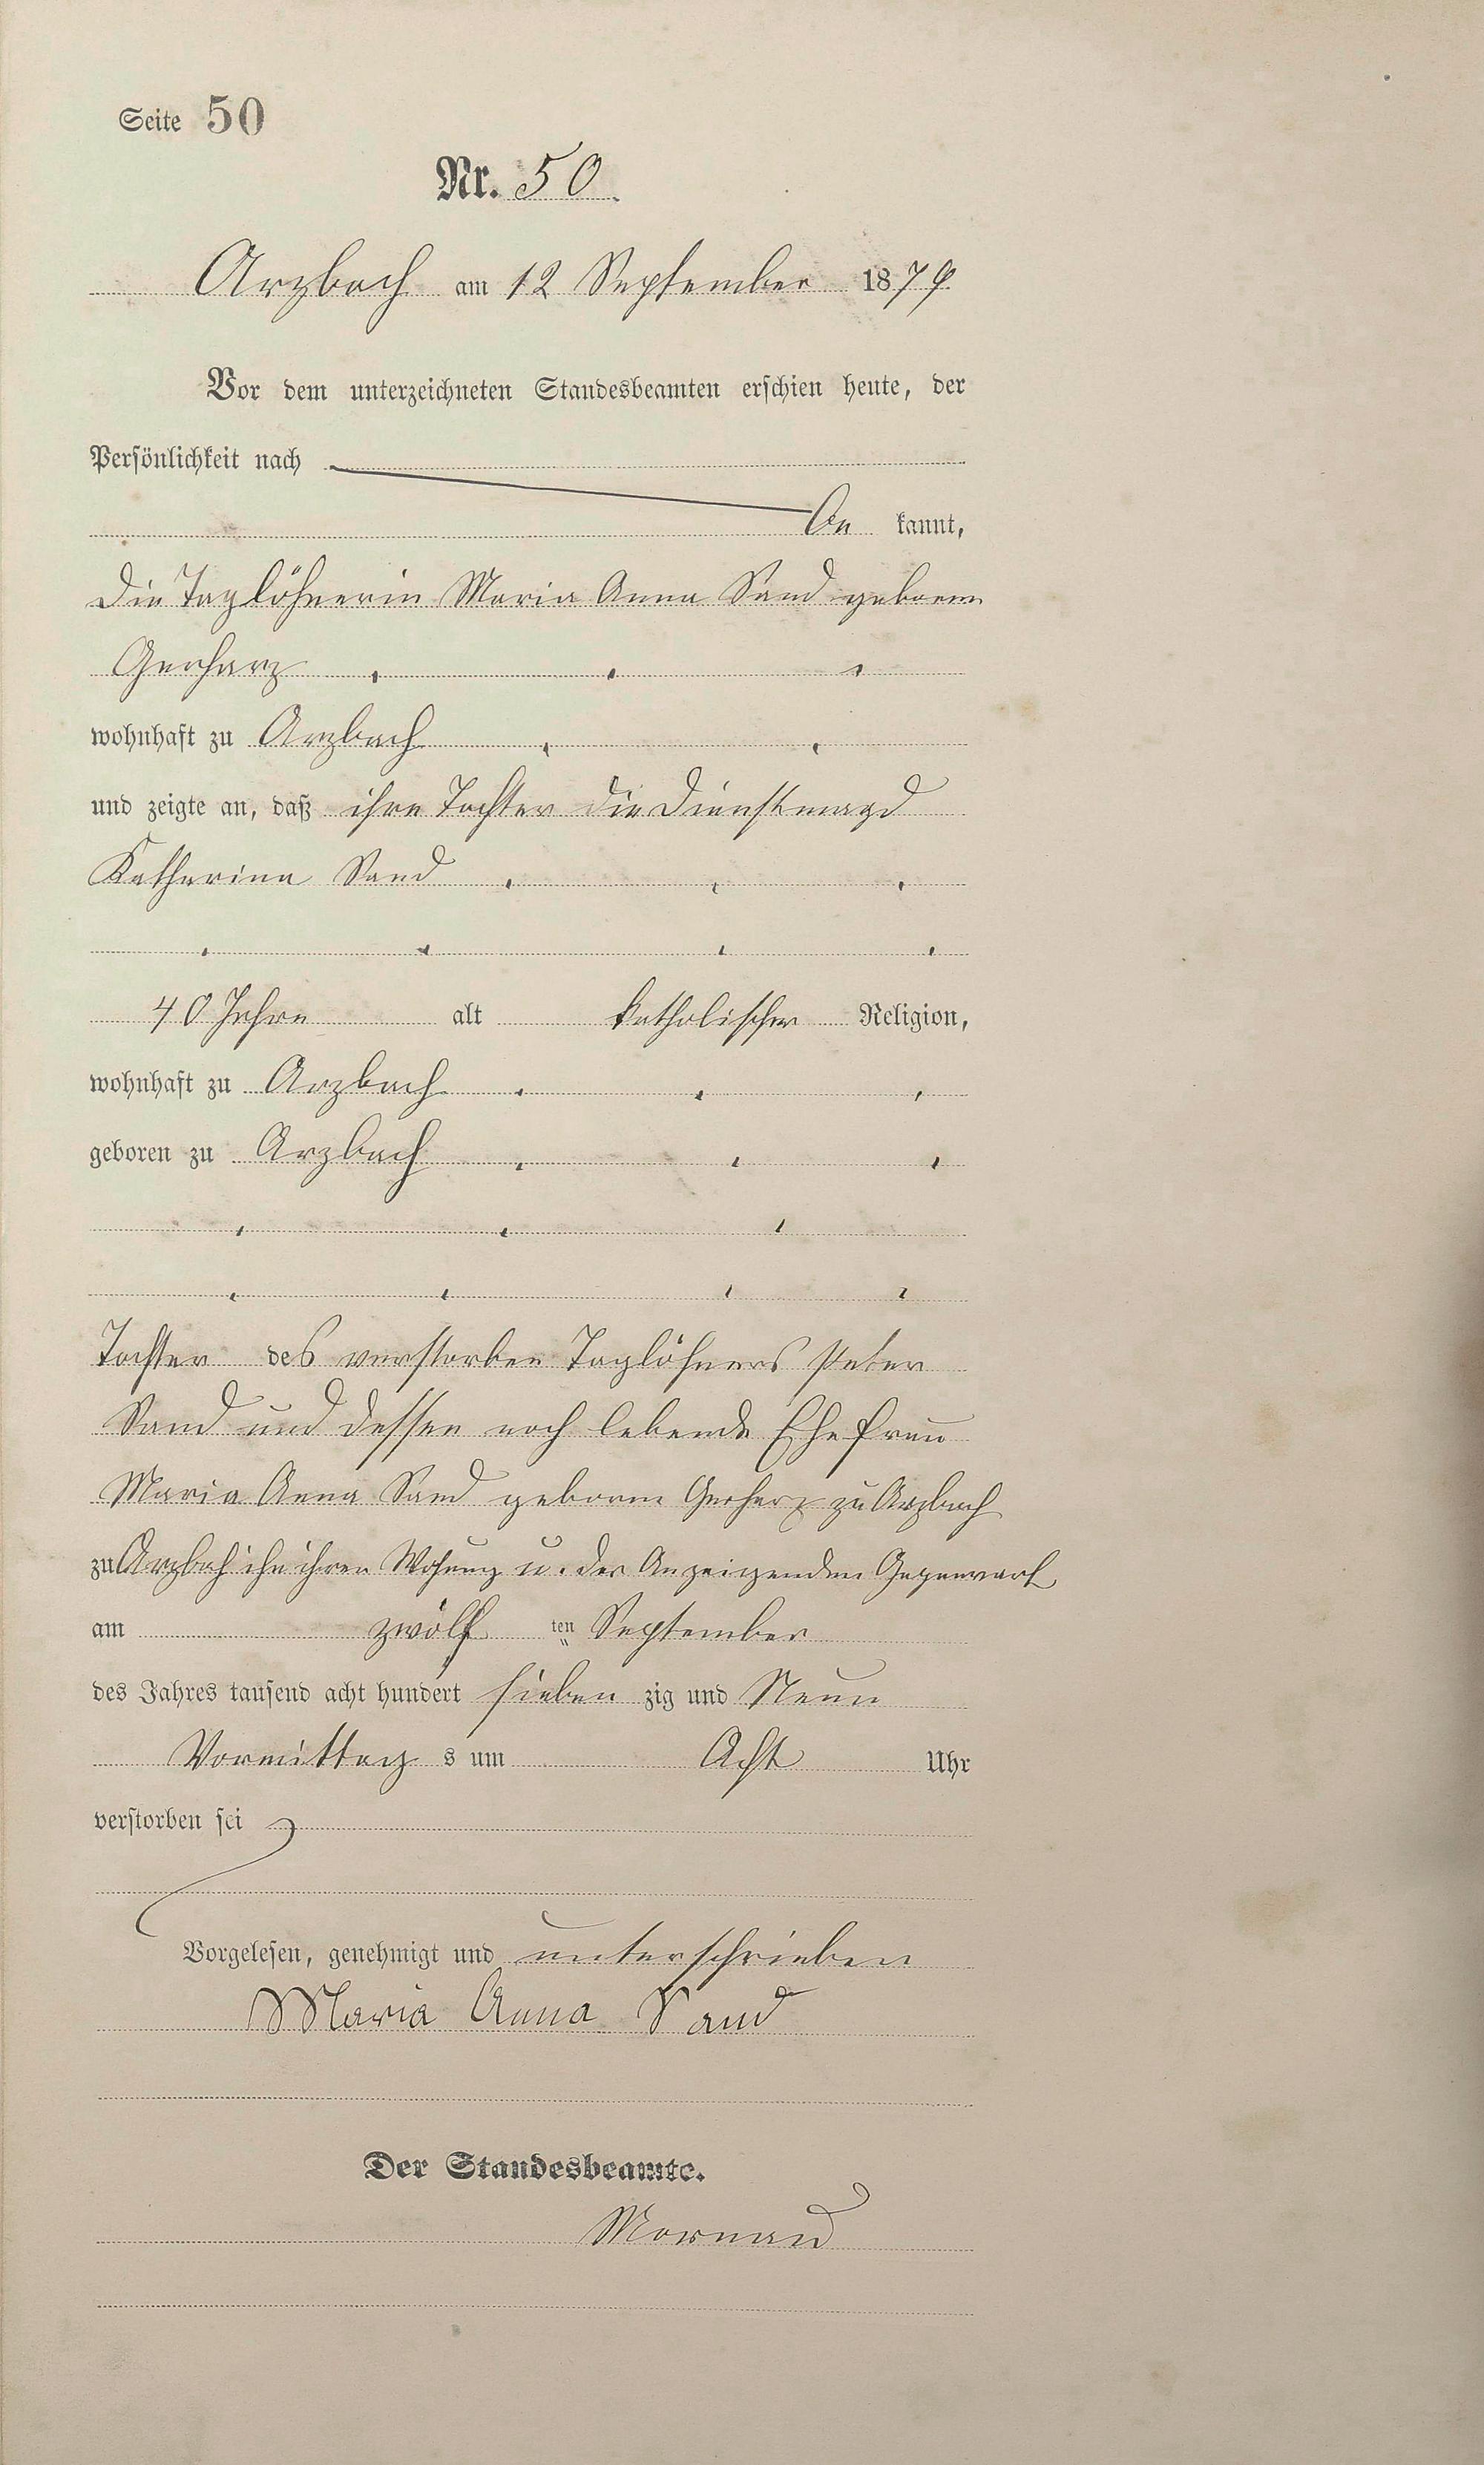 Seite 50
Nr. 50.
Arzbach am 12 September 1879.
Vor dem unterzeichneten Standesbeamten erschien heute, der
Persönlichkeit nach
Be kannt,
die Taglöhnerin Maria Anna Sand geboren
Gerharz
wohnhaft zu Arzbach
und zeigte an, daß ihre Tochter die Dienstmagd
Katharina Sand
40 Jahre alt katholischer Religion,
wohnhaft zu Arzbach
geboren zu Arzbach
Tochter des verstorben Taglöhners Peter
Sand und dessen noch lebende Ehefrau
Maria Anna Sand geborne Gerharz zu Arzbach
zu Arzbach ihn ihren Wohung u. der Anzeigenden Gegenwart
am zwölf ten September
des Jahres tausend acht hundert sieben zig und Neun
Vormittag s um Acht Uhr
verstorben sei
Vorgelesen, genehmigt und unterschrieben
Maria Anna Sand
Der Standesbeamte.